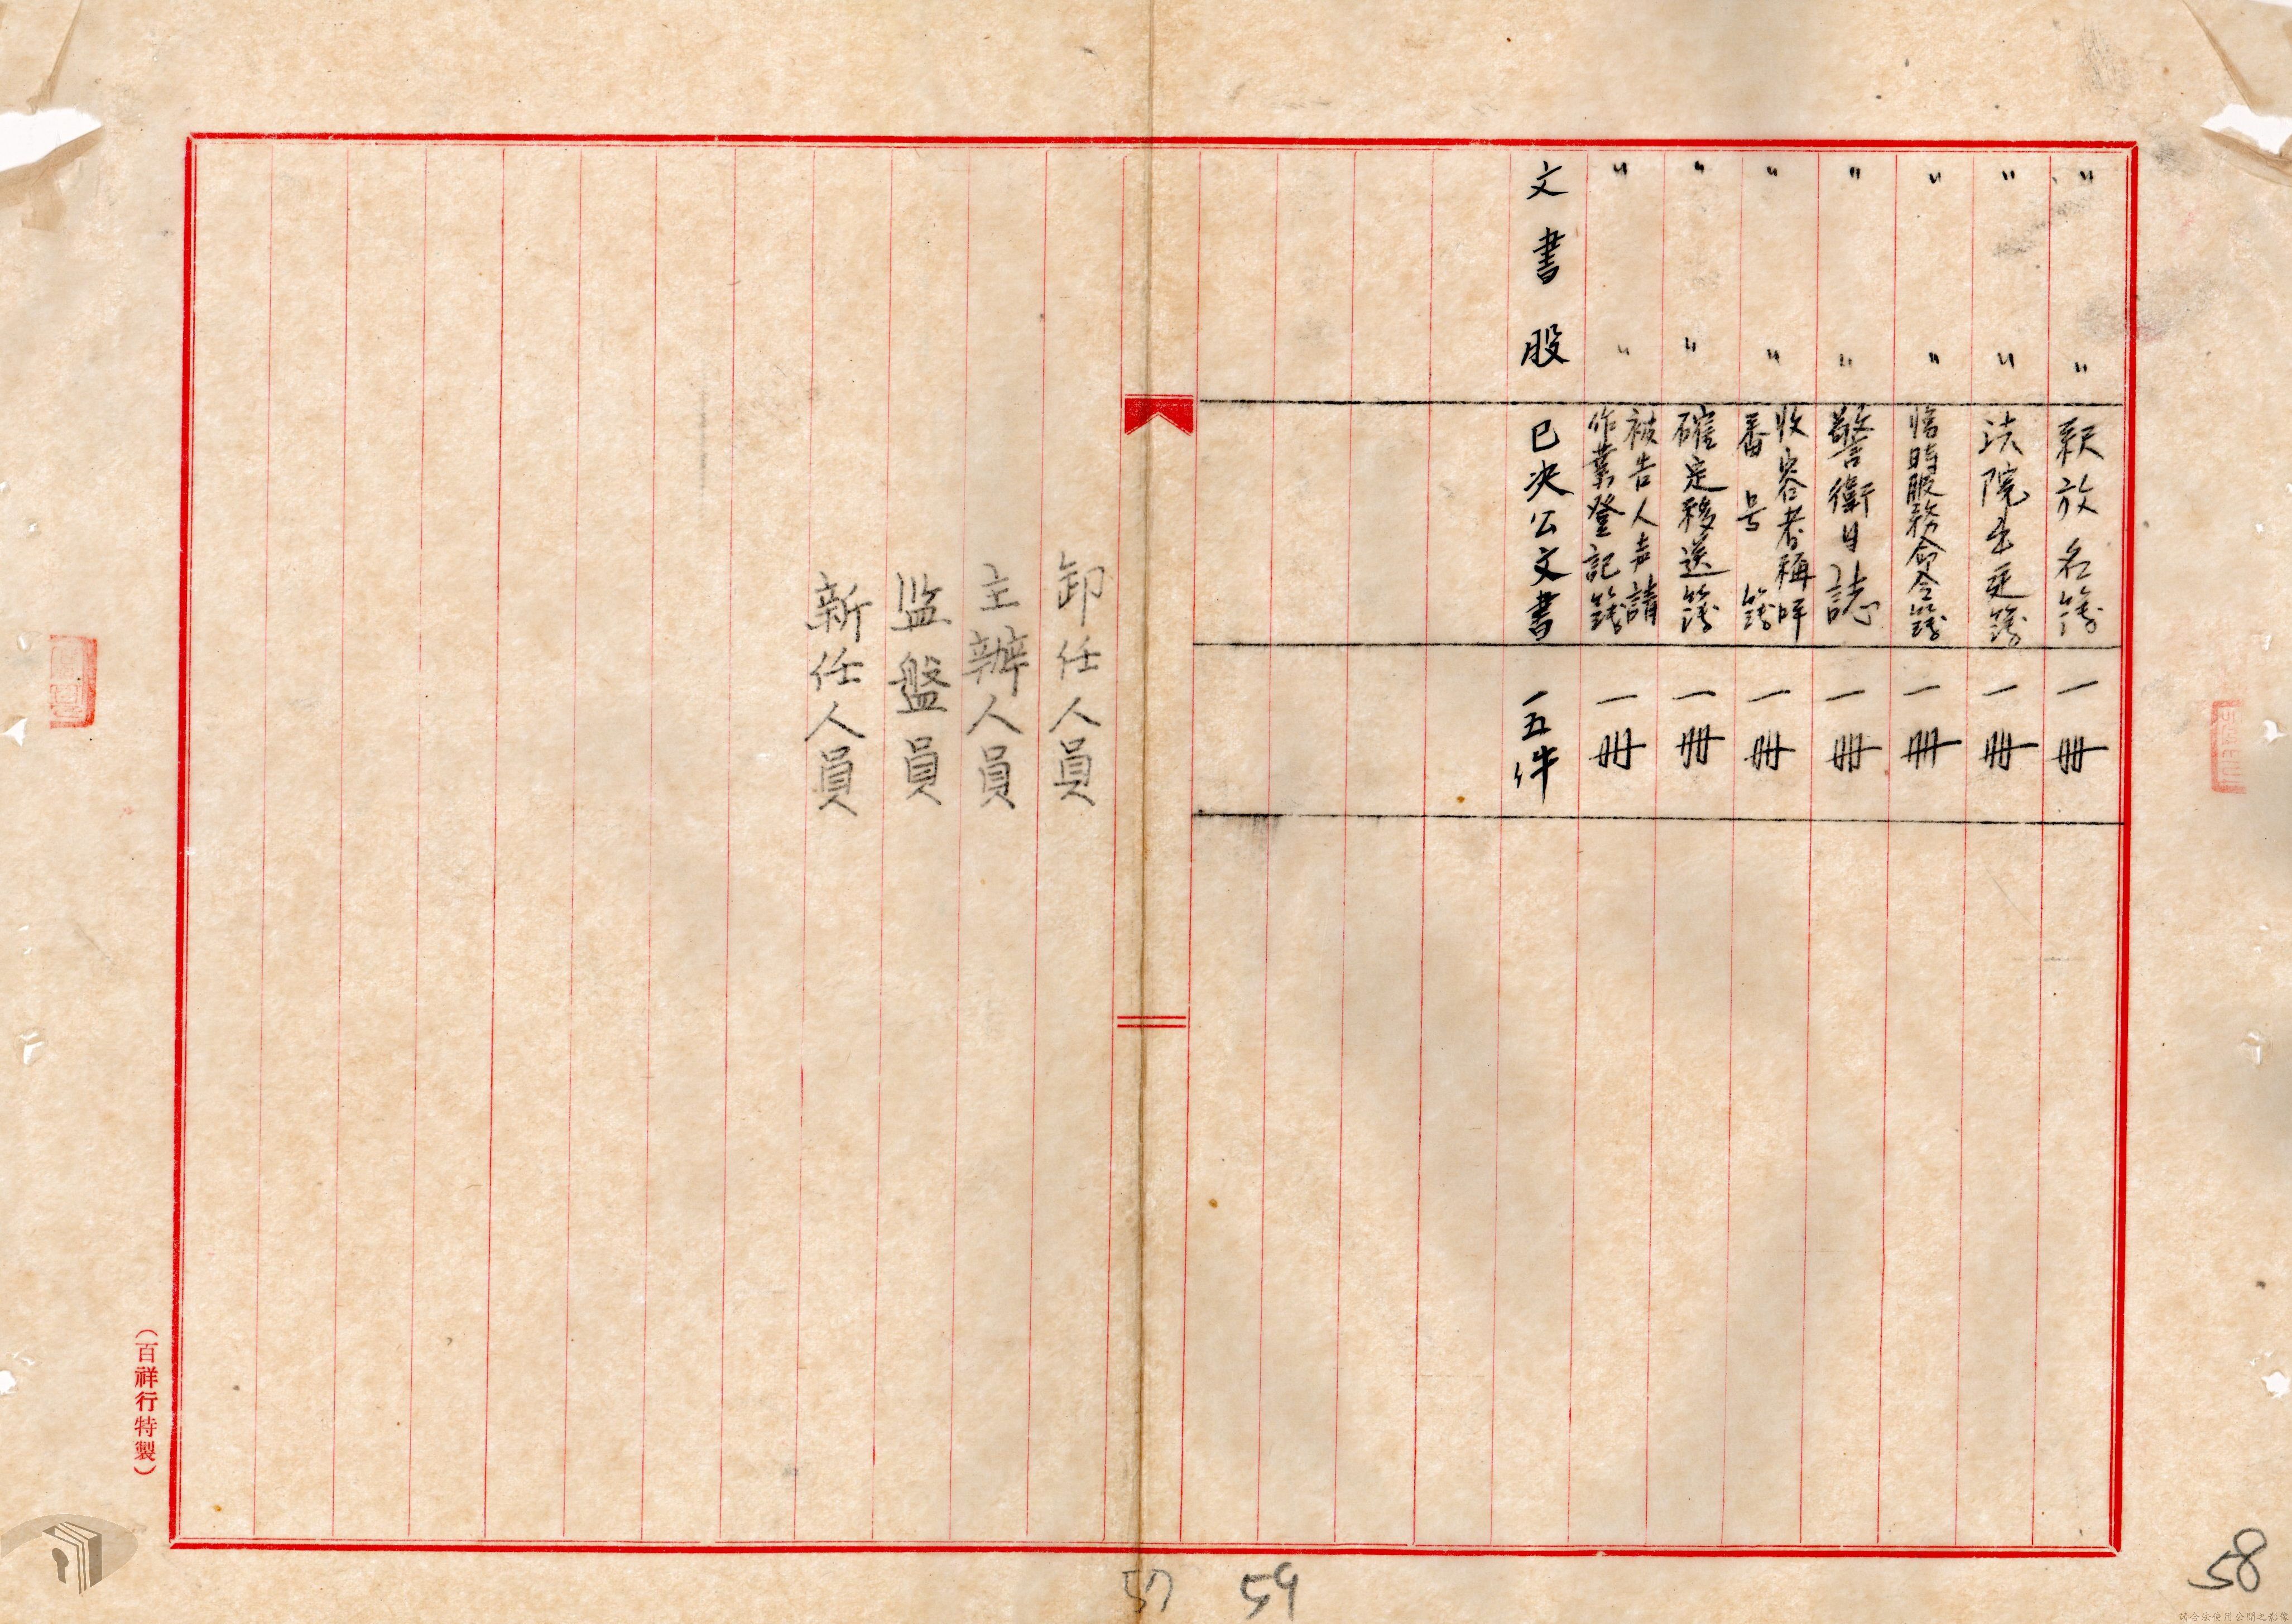 〃 〃 釈放名簿 一冊
〃 〃 法院出廷簿 一冊
〃 〃 臨時服務命令簿 一冊
〃 〃 警衛日誌 一冊
〃 〃 收容者稱呼
番号簿 一冊
〃 〃 確定移送簿 一冊
〃 〃 被告人声請
作業登記簿 一冊
文書股 已決公文書 一五件
卸任人員
主辦人員
监盤員
新任人員
（百祥行特製）
57
59
58
請合法使用公開之影像